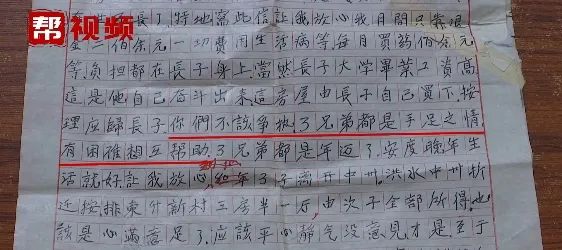 帮视频
長了特地寫此信讓我放心我月間只靠退
金三佰余元一切費用生活病等每月買葯佰余元
等负担都在長子身上當然長子大学畢業工資高
這是他自己奋斗出来這房屋由長子自己買下按
理应歸長子你們不該争执了兄弟都是手足之情
有困难想互帮助了兄弟都是年迈了安度晚年生
活就好让我放心 年了子离开中州洪水中州折
近按排東什新村二房半一厅由次子全部所得也
該是心满意足了应該平心静气没意見才是至于